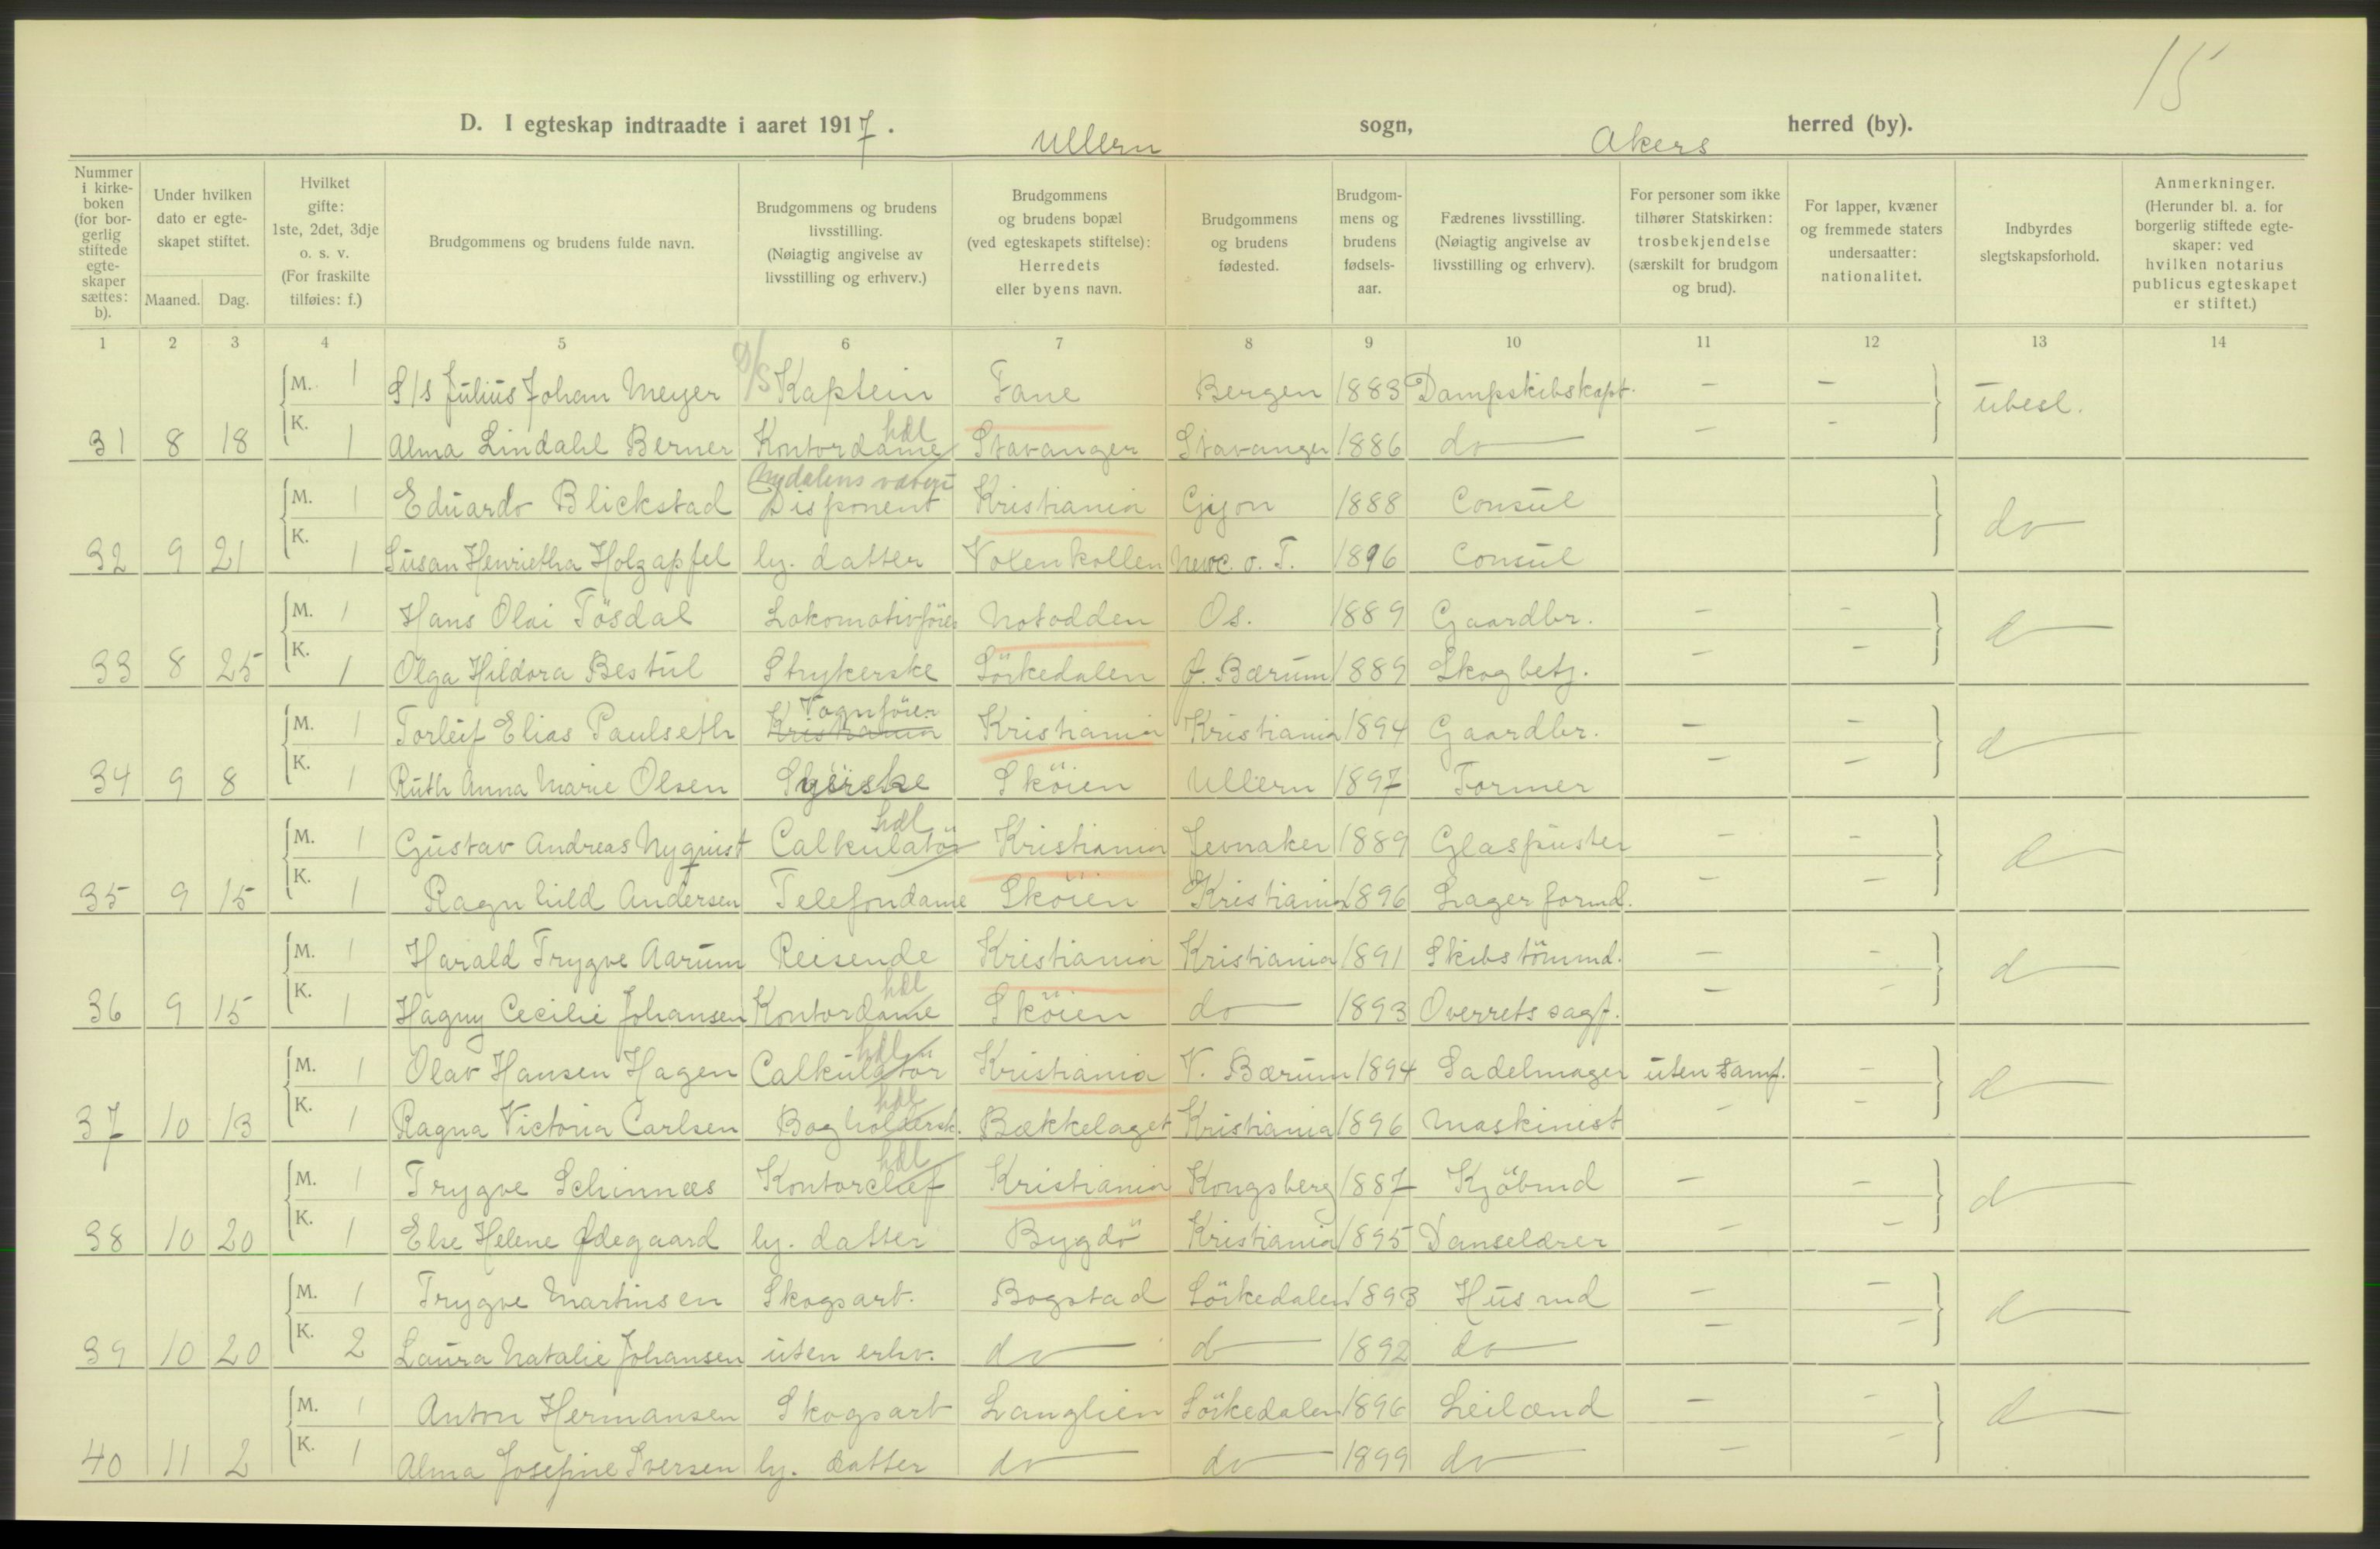 15
D. I egteskap indtraadte i aaret 1917. Ullern sogn, Akers herred (by).
Nummer i kirke- boken (for bor- gerlig stiftede egte- skaper sættes: b).
Under hvilken dato er egte- skapet stiftet.
Maaned. Dag.
Hvilket gifte: 1ste, 2det, 3dje o. s. v. (For fraskilte tilføies: f.)
Brudgommens og brudens fulde navn.
Brudgommens og brudens livsstilling. (Nøiagtig angivelse av livsstilling og erhverv.)
Brudgommens og brudens bopæl (ved egteskapets stiftelse): Herredets eller byens navn.
Brudgommens og brudens fødested.
Brudgom- mens og brudens fødsels- aar.
Fædrenes livsstilling. (Nøiagtig angivelse av livsstilling og erhverv).
For personer som ikke tilhører Statskirken: trosbekjendelse (særskilt for brudgom og brud).
For lapper, kvæner og fremmede staters undersaatter: nationalitet.
Indbyrdes slegtskapsforhold.
Anmerkninger. (Herunder bl. a. for borgerlig stiftede egte- skaper: ved hvilken notarius publicus egteskapet er stiftet.)
1 2 3 4 5 6 7 8 9 10 11 12 13 14
M. 1 S/s Julius Johan Meyer D/S Kaptein Fane Bergen 1883 Dampskibskapt. — — ubesl.
hdl
31 8 18 K. 1 Alma Lindahl Berner Kontordame Stavanger Stavanger 1886 do — —
Nydalens
M. 1 Eduardo Blickstad Disponent Kristiania Gijon 1888 Consul do
32 9 21 K. 1 Susan Henrietha Holzapfel hj. datter Voxenkollen Newc. o. T. 1896 Consul
M. 1 Hans Olai Tösdal Lokomotivförer Notodden Os. 1889 Gaardbr. — — d
33 8 25 K. 1 Olga Hildora Bestul Strykerske Sörkedalen Ø. Bærum 1889 Skogbetj. — —
Vognförer
M. 1 Torleif Elias Paulseth Kristiania Kristiania Kristiania 1894 Gaardbr. — — d
34 9 8 K. 1 Ruth Anna Marie Olsen Syerske Sköien Ullern 1897 Former — —
hdl
M. 1 Gustav Andreas Nyquist Calkulatör Kristiania Jevnaker 1889 Glaspuster — — d
35 9 15 K. 1 Ragnhild Andersen Telefondame Sköien Kristiania 1896 Lagerformd. — —
M. 1 Harald Trygve Aarum Reisende Kristiania Kristiania 1891 Skibstömmd. — — d
hdl
36 9 15 K. 1 Hagny Cecilie Johansen Kontordame Sköien do 1893 Overrets sagf. — —
hdl
M. 1 Olav Hansen Hagen Calkulatör Kristiania V. Bærum 1894 Sadelmager uten samf. — d
hdl
37 10 13 K. 1 Ragna Victoria Carlsen Bogholdersk. Bækkelaget Kristiania 1896 Maskinist — —
hdl
M. 1 Trygve Schinnæs Kontorchef Kristiania Kongsberg 1887 Kjöbmd — — d
38 10 20 K. 1 Else Helene Ødegaard hj. datter Bygdö Kristiania 1895 Danselærer — —
M. 1 Trygve Martinsen Skogsarb. Bogstad Sörkedalen 1893 Husmd — — d
39 10 20 K. 2 Laura Natalie Johansen uten erhv. do d 1892 do — —
M. 1 Anton Hermansen Skogsarb Langlien Sörkedalen 1896 Leilænd — — d
40 11 2 K. 1 Alma Josefine Iversen hj. datter do do 1899 do — —